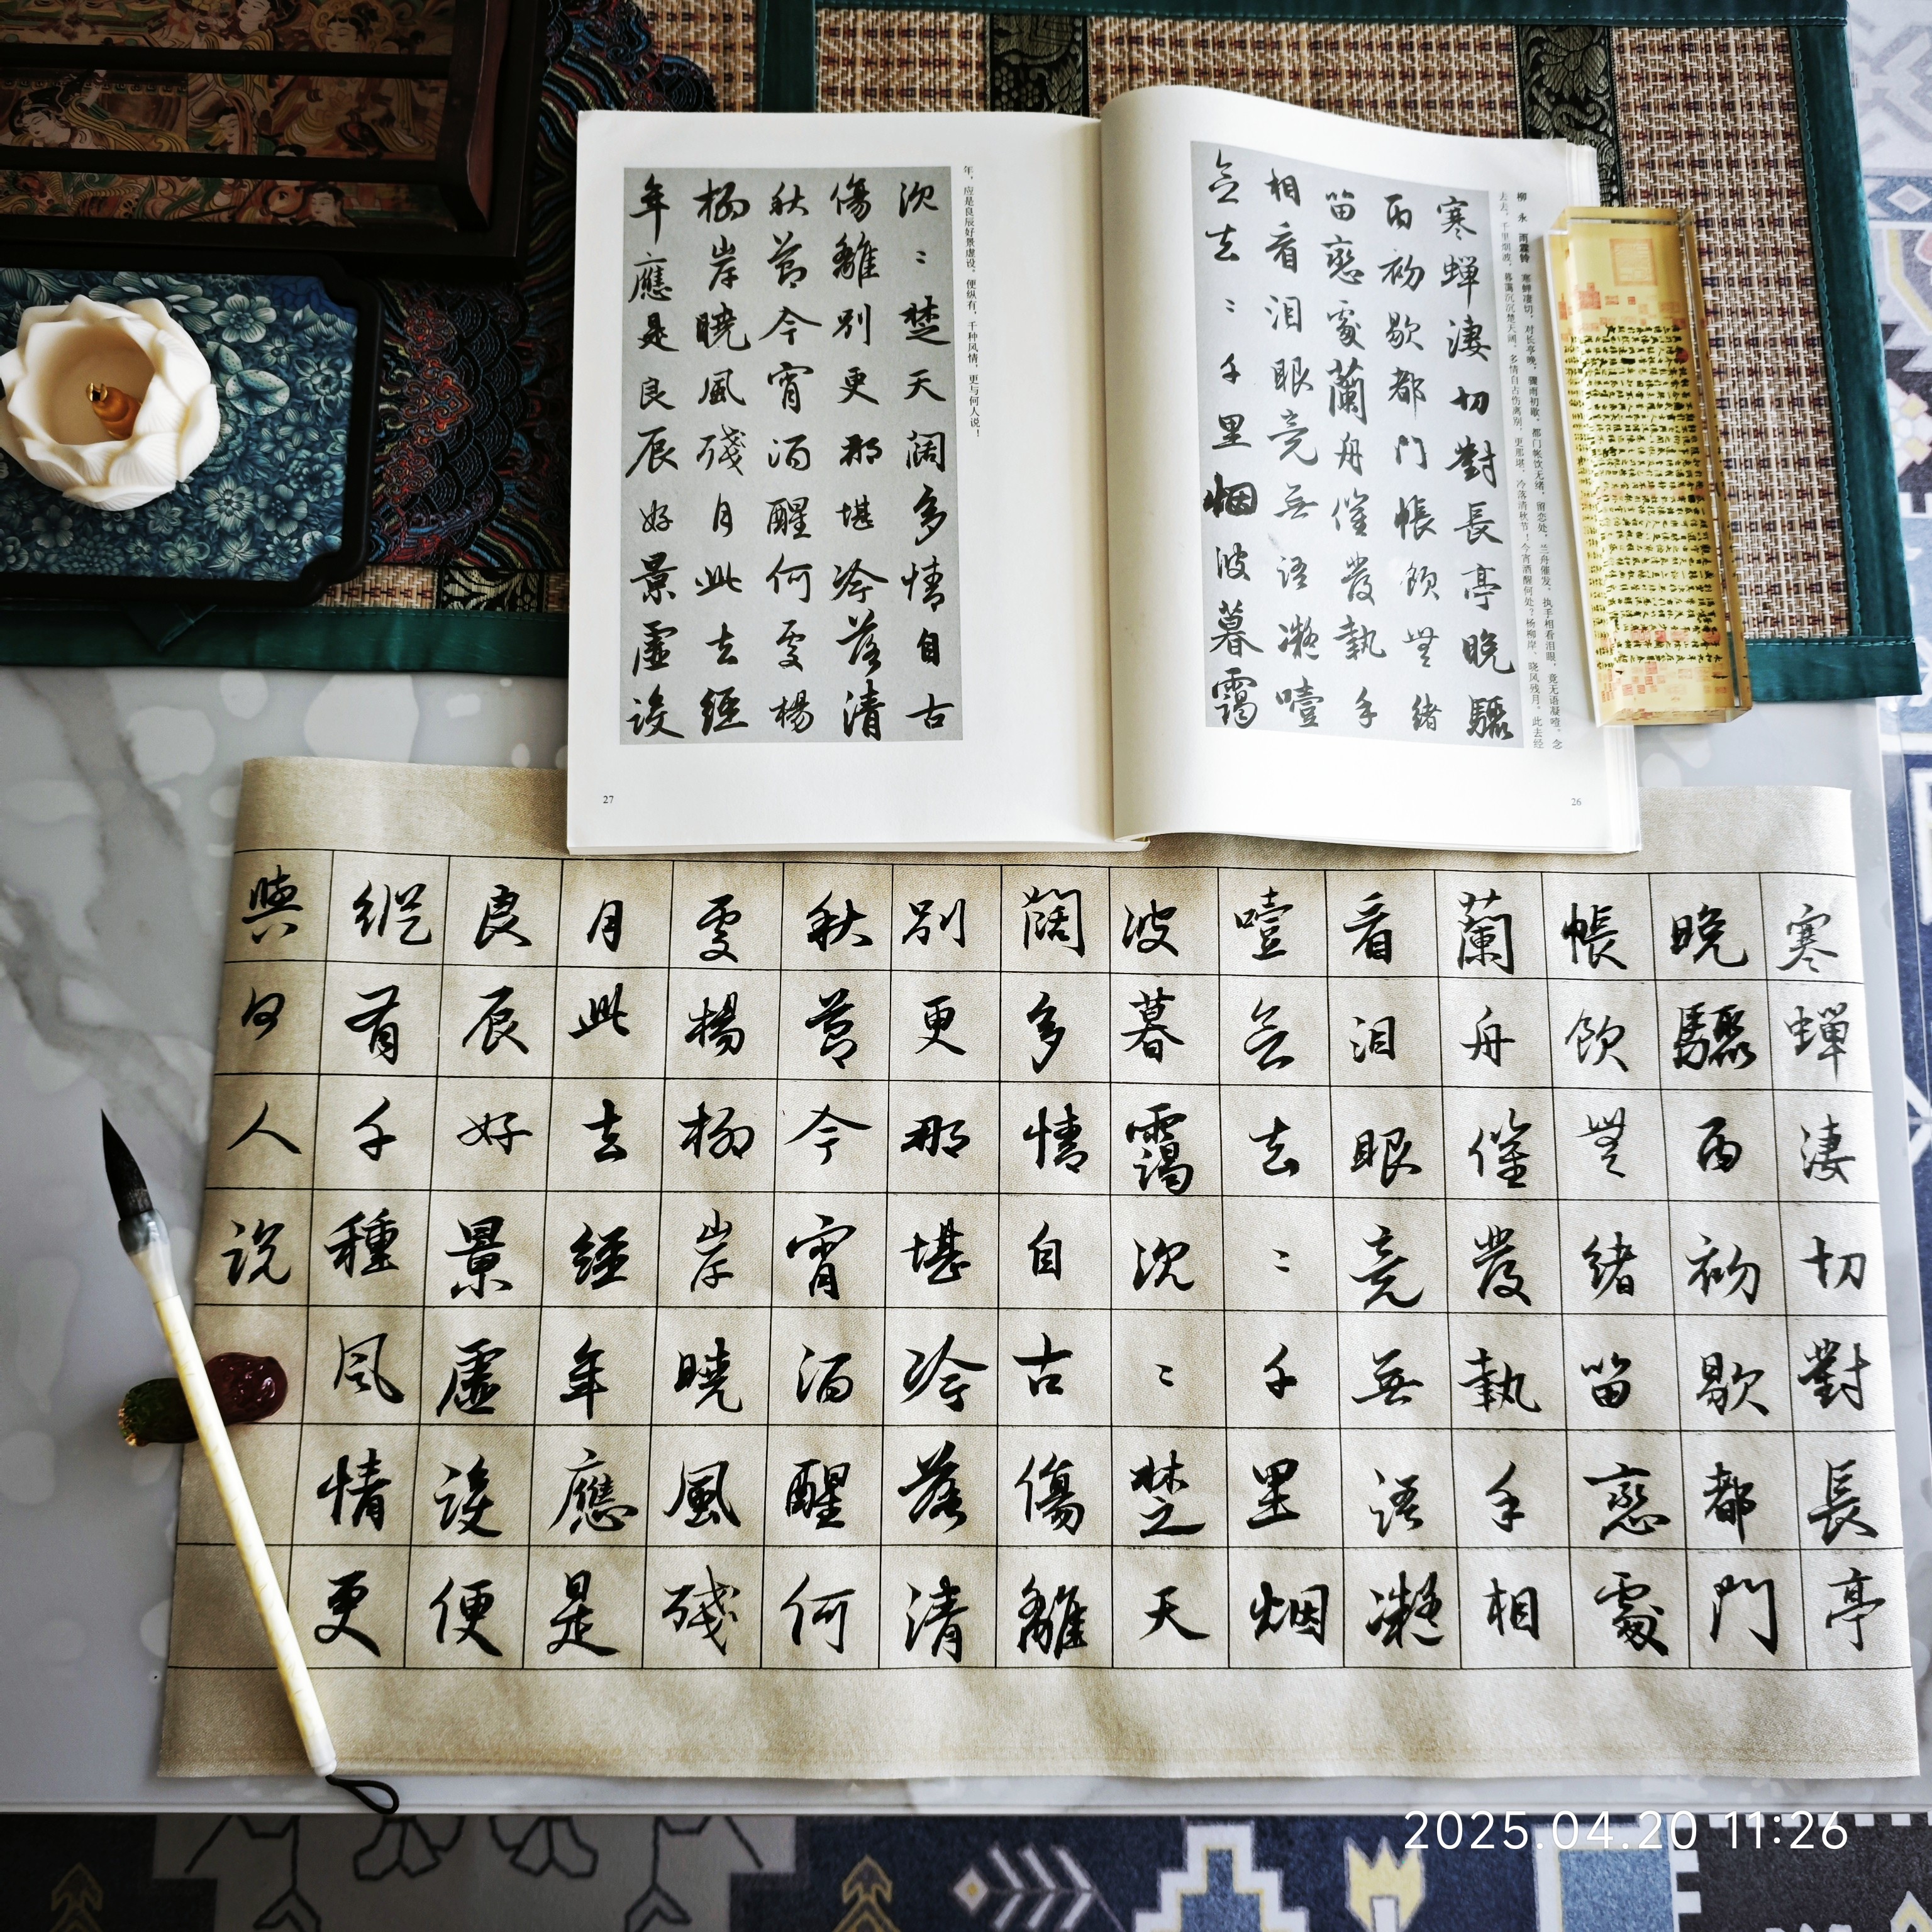 柳永 雨霖铃 寒蝉凄切，对长亭晚，骤雨初歇，都门帐饮无绪，留恋处，兰舟催发，执手相看泪眼，竟无语凝噎。念
去去，千里烟波，暮霭沉沉楚天阔，多情自古伤离别，更那堪，冷落清秋节！今宵酒醒何处？杨柳岸、晓风残月。此去经
寒蟬淒切對長亭晚驟
雨初歇都門帳飲無緒
留戀處蘭舟催發執手
相看泪眼竟無語凝噎
念去〻千里烟波暮靄
26
年，应是良辰好景虚设。便纵有，千种风情，更与何人说！
沉〻楚天闊多情自古
傷離別更那堪冷落清
秋節今宵酒醒何處楊
柳岸曉風殘月此去經
年應是良辰好景虛設
27
寒蟬淒切對長亭
晚驟雨初歇都門
帳飲無緒留戀處
蘭舟催發執手相
看泪眼竟無語凝
噎念去〻千里烟
波暮靄沉〻楚天
闊多情自古傷離
別更那堪冷落清
秋節今宵酒醒何
處楊柳岸曉風殘
月此去經年應是
良辰好景虛設便
縱有千種风情更
與何人説
2025.04.20 11:26